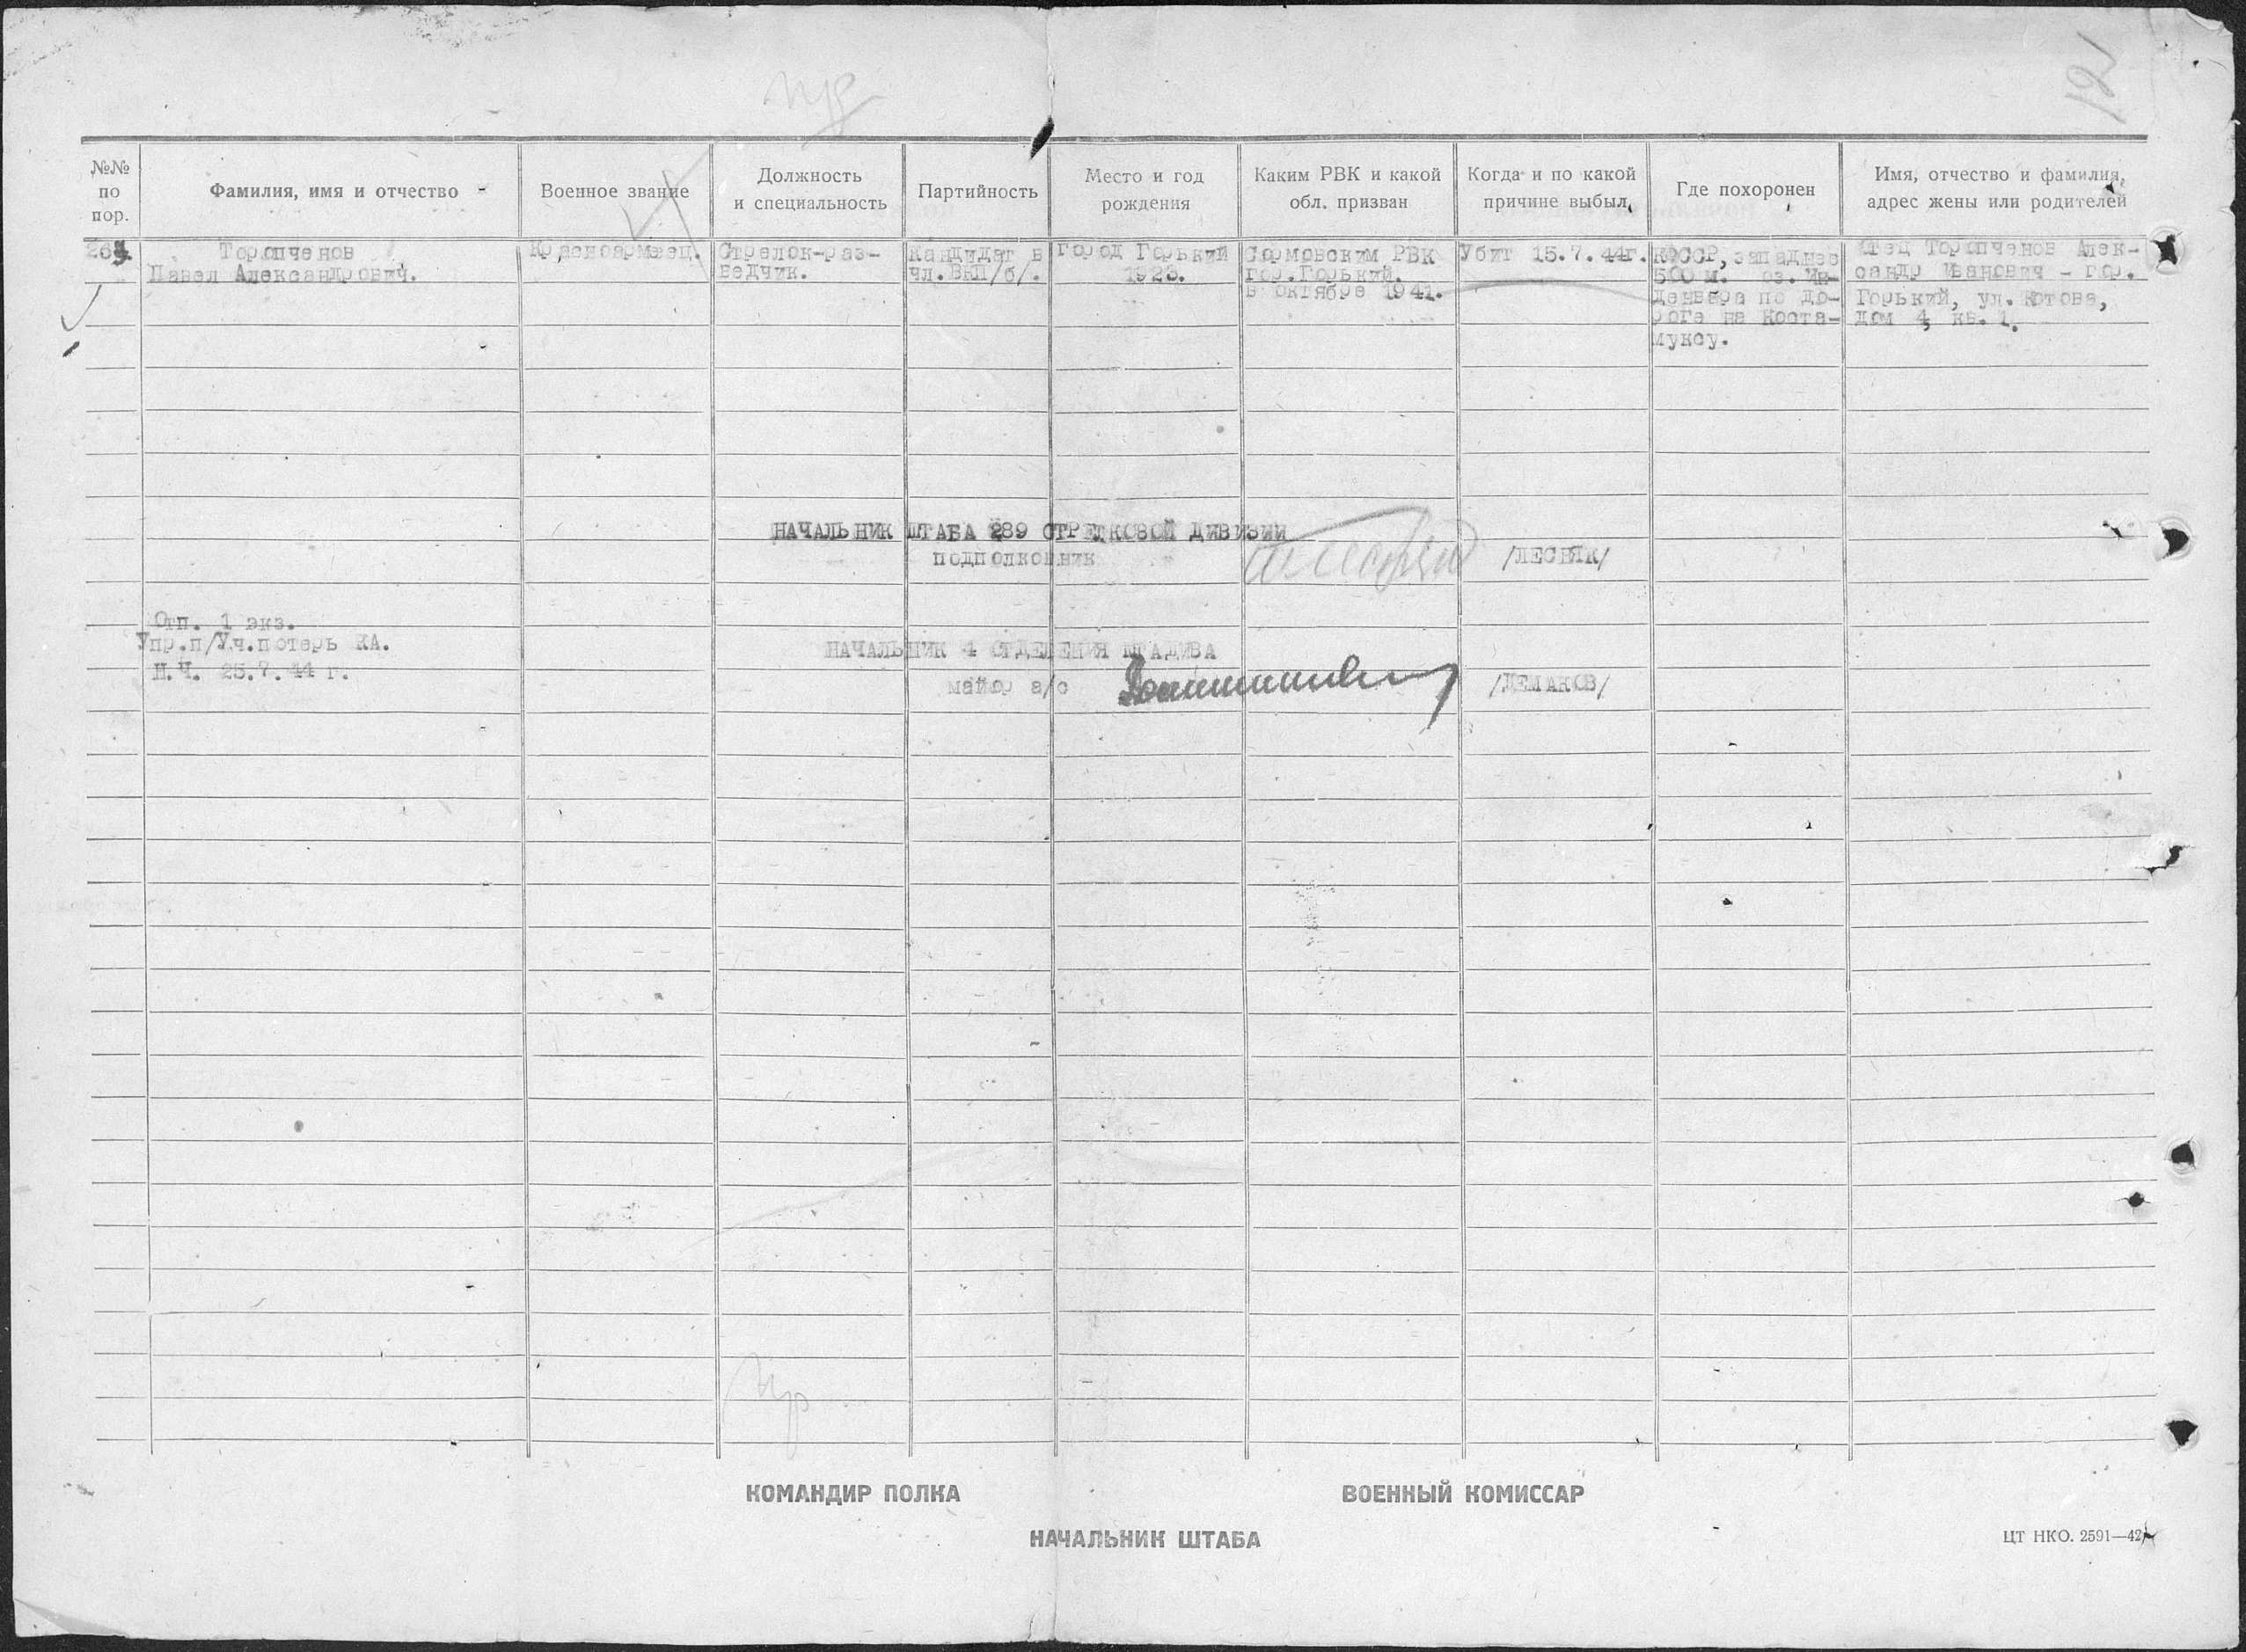 121
№№
по
пор.
Фамилия, имя и отчество
Военное звание
Должность
и специальность
Партийность
Место и год
рождения
Каким РВК и какой
обл. призван
Когда и по какой
причине выбыл
Где похоронен
Имя, отчество и фамилия,
адрес жены или родителей
Торопченов
Павел Александрович.
Красноармеец.
Стрелок-раз-
ведчик.
Кандидат в
чл.ВКП/б/.
город Горький
1923.
Сормовским РВК
гор.Горький.
в октябре 1941.
Убит 15.7.44г.
КФССР, западнее
500 м. оз. Ин-
денвара по до-
роге на Коста-
муксу.
Отец Торопченов Алек-
сандр Иванович - гор.
Горький, ул. Котова,
дом 4, кв. 1.
НАЧАЛЬНИК ШТАБА 289 СТРЕЛКОВОЙ ДИВИЗИИ
подполковник /ЛЕСНЯК/
Отп. 1 экз.
Упр.п/Уч.потерь КА.
Н.Ч. 25.7.44 г.
НАЧАЛЬНИК 4 ОТДЕЛЕНИЯ ШТАДИВА
майор а/с /ДЕМАКОВ/
КОМАНДИР ПОЛКА
ВОЕННЫЙ КОМИССАР
НАЧАЛЬНИК ШТАБА
ЦТ НКО. 2591—42